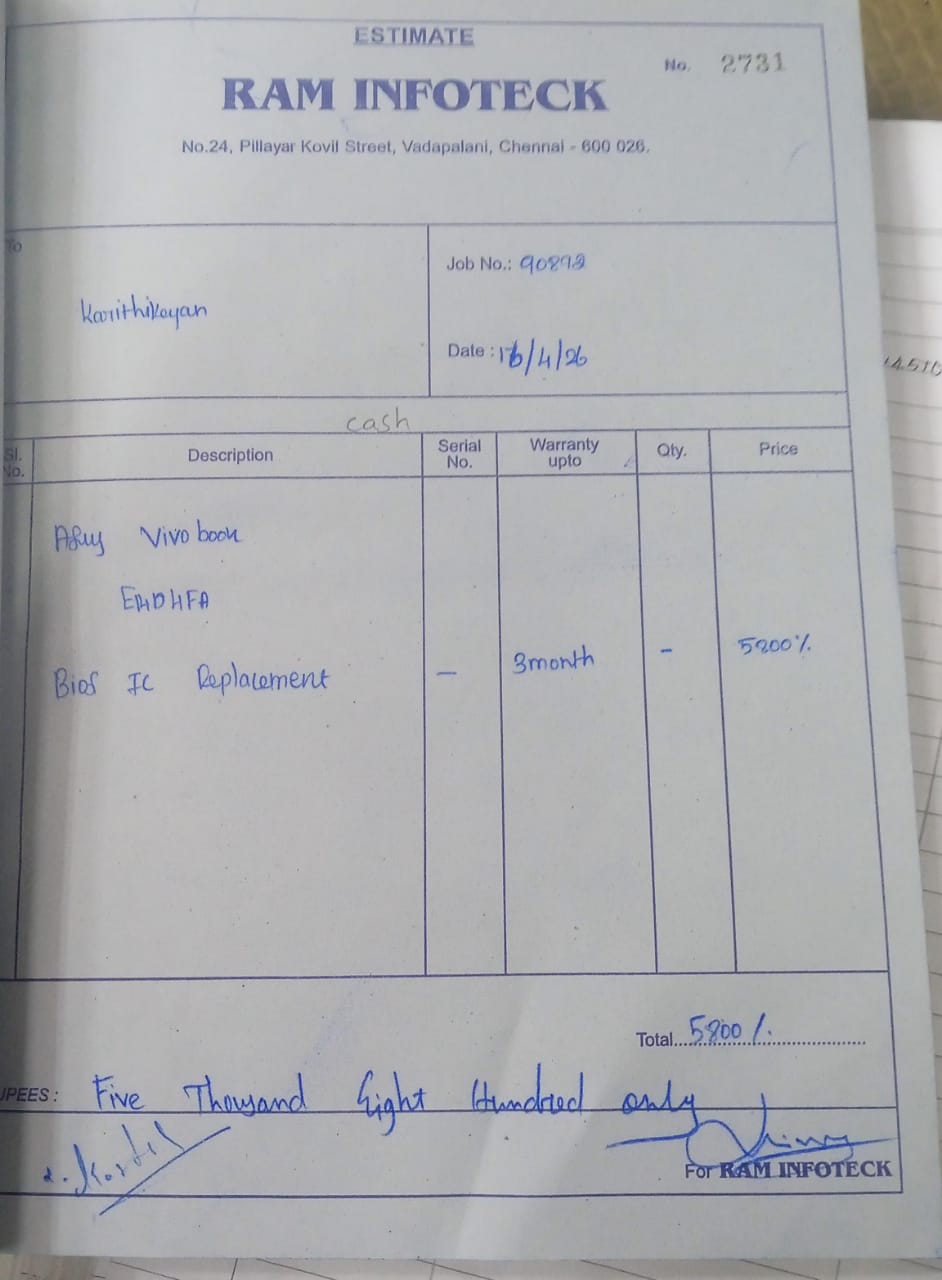 ESTIMATE
No. 2731
RAM INFOTECK
No.24, Pillayar Kovil Street, Vadapalani, Chennai - 600 026.
To
Karithikeyan
Job No.:
Date : 16/4/26
cash
Sl. No. Description Serial No. Warranty upto Qty. Price
Vivo book
Bios IC Replacement - 3month - 5800%
Total 5800/.
UPEES : Five Thousand Eight Hundred only
For RAM INFOTECK